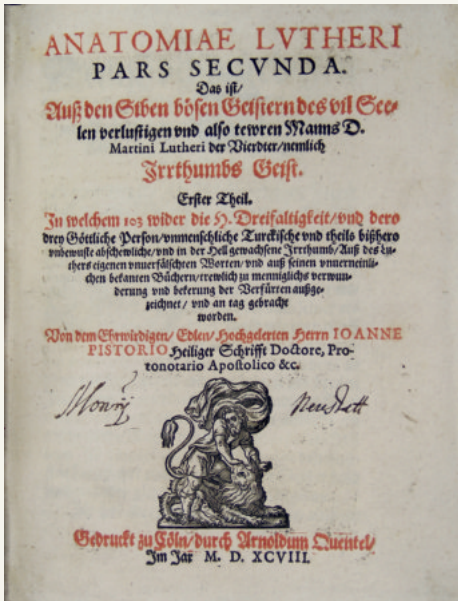 ANATOMIAE LVTHERI
PARS SECVNDA.
Das ist/
Auß den Siben bösen Geistern des vil See-
len verlustigen vnd also tewren Manns D.
Martini Lutheri der Vierdter/nemlich
Irrthumbs Geist.
Erster Theil.
In welchem 103 wider die H. Dreifaltigkeit/vnd dero
drey Göttliche Person/vnmenschliche Turckische vnd theils bißhero
vnbewuste abschewliche/vnd in der Hell gewachsene Irrthumb/Auß des Lu-
thers eigenen vnuerfälschten Worten/vnd auß seinen vnuerneinli-
chen bekanten Büchern/trewlich zu menniglichs verwun-
derung vnd bekerung der Verfürten außge-
zeichnet/vnd an tag gebracht
worden.
Von dem Ehrwürdigen/Edlen/Hochgelerten Herrn IOANNE
PISTORIO Heiliger Schrifft Doctore, Pro-
tonotario Apostolico &c.
Neustatt
Gedruckt zu Cöln/durch Arnoldum Quentel/
Im Jar M. D. XCVIII.